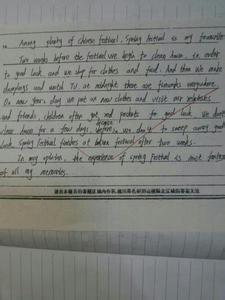 Among plenty of Chinese festival, Spring festival is my favourite
Two weeks before the festival we begin to clean house, in order
to good luck, and we shop for clothes and food. And then we make
dumplings and until TV at midnight there are fireworks everywhere.
On new years day we put on new clothes and visit our
and friends, children often get red packets for good luck. We don't
clean house for a few days, we don't to sweep away good
luck. Spring festival finishes at festival after two weeks.
In my opinion, the experience of spring festival is most
of all my memories.